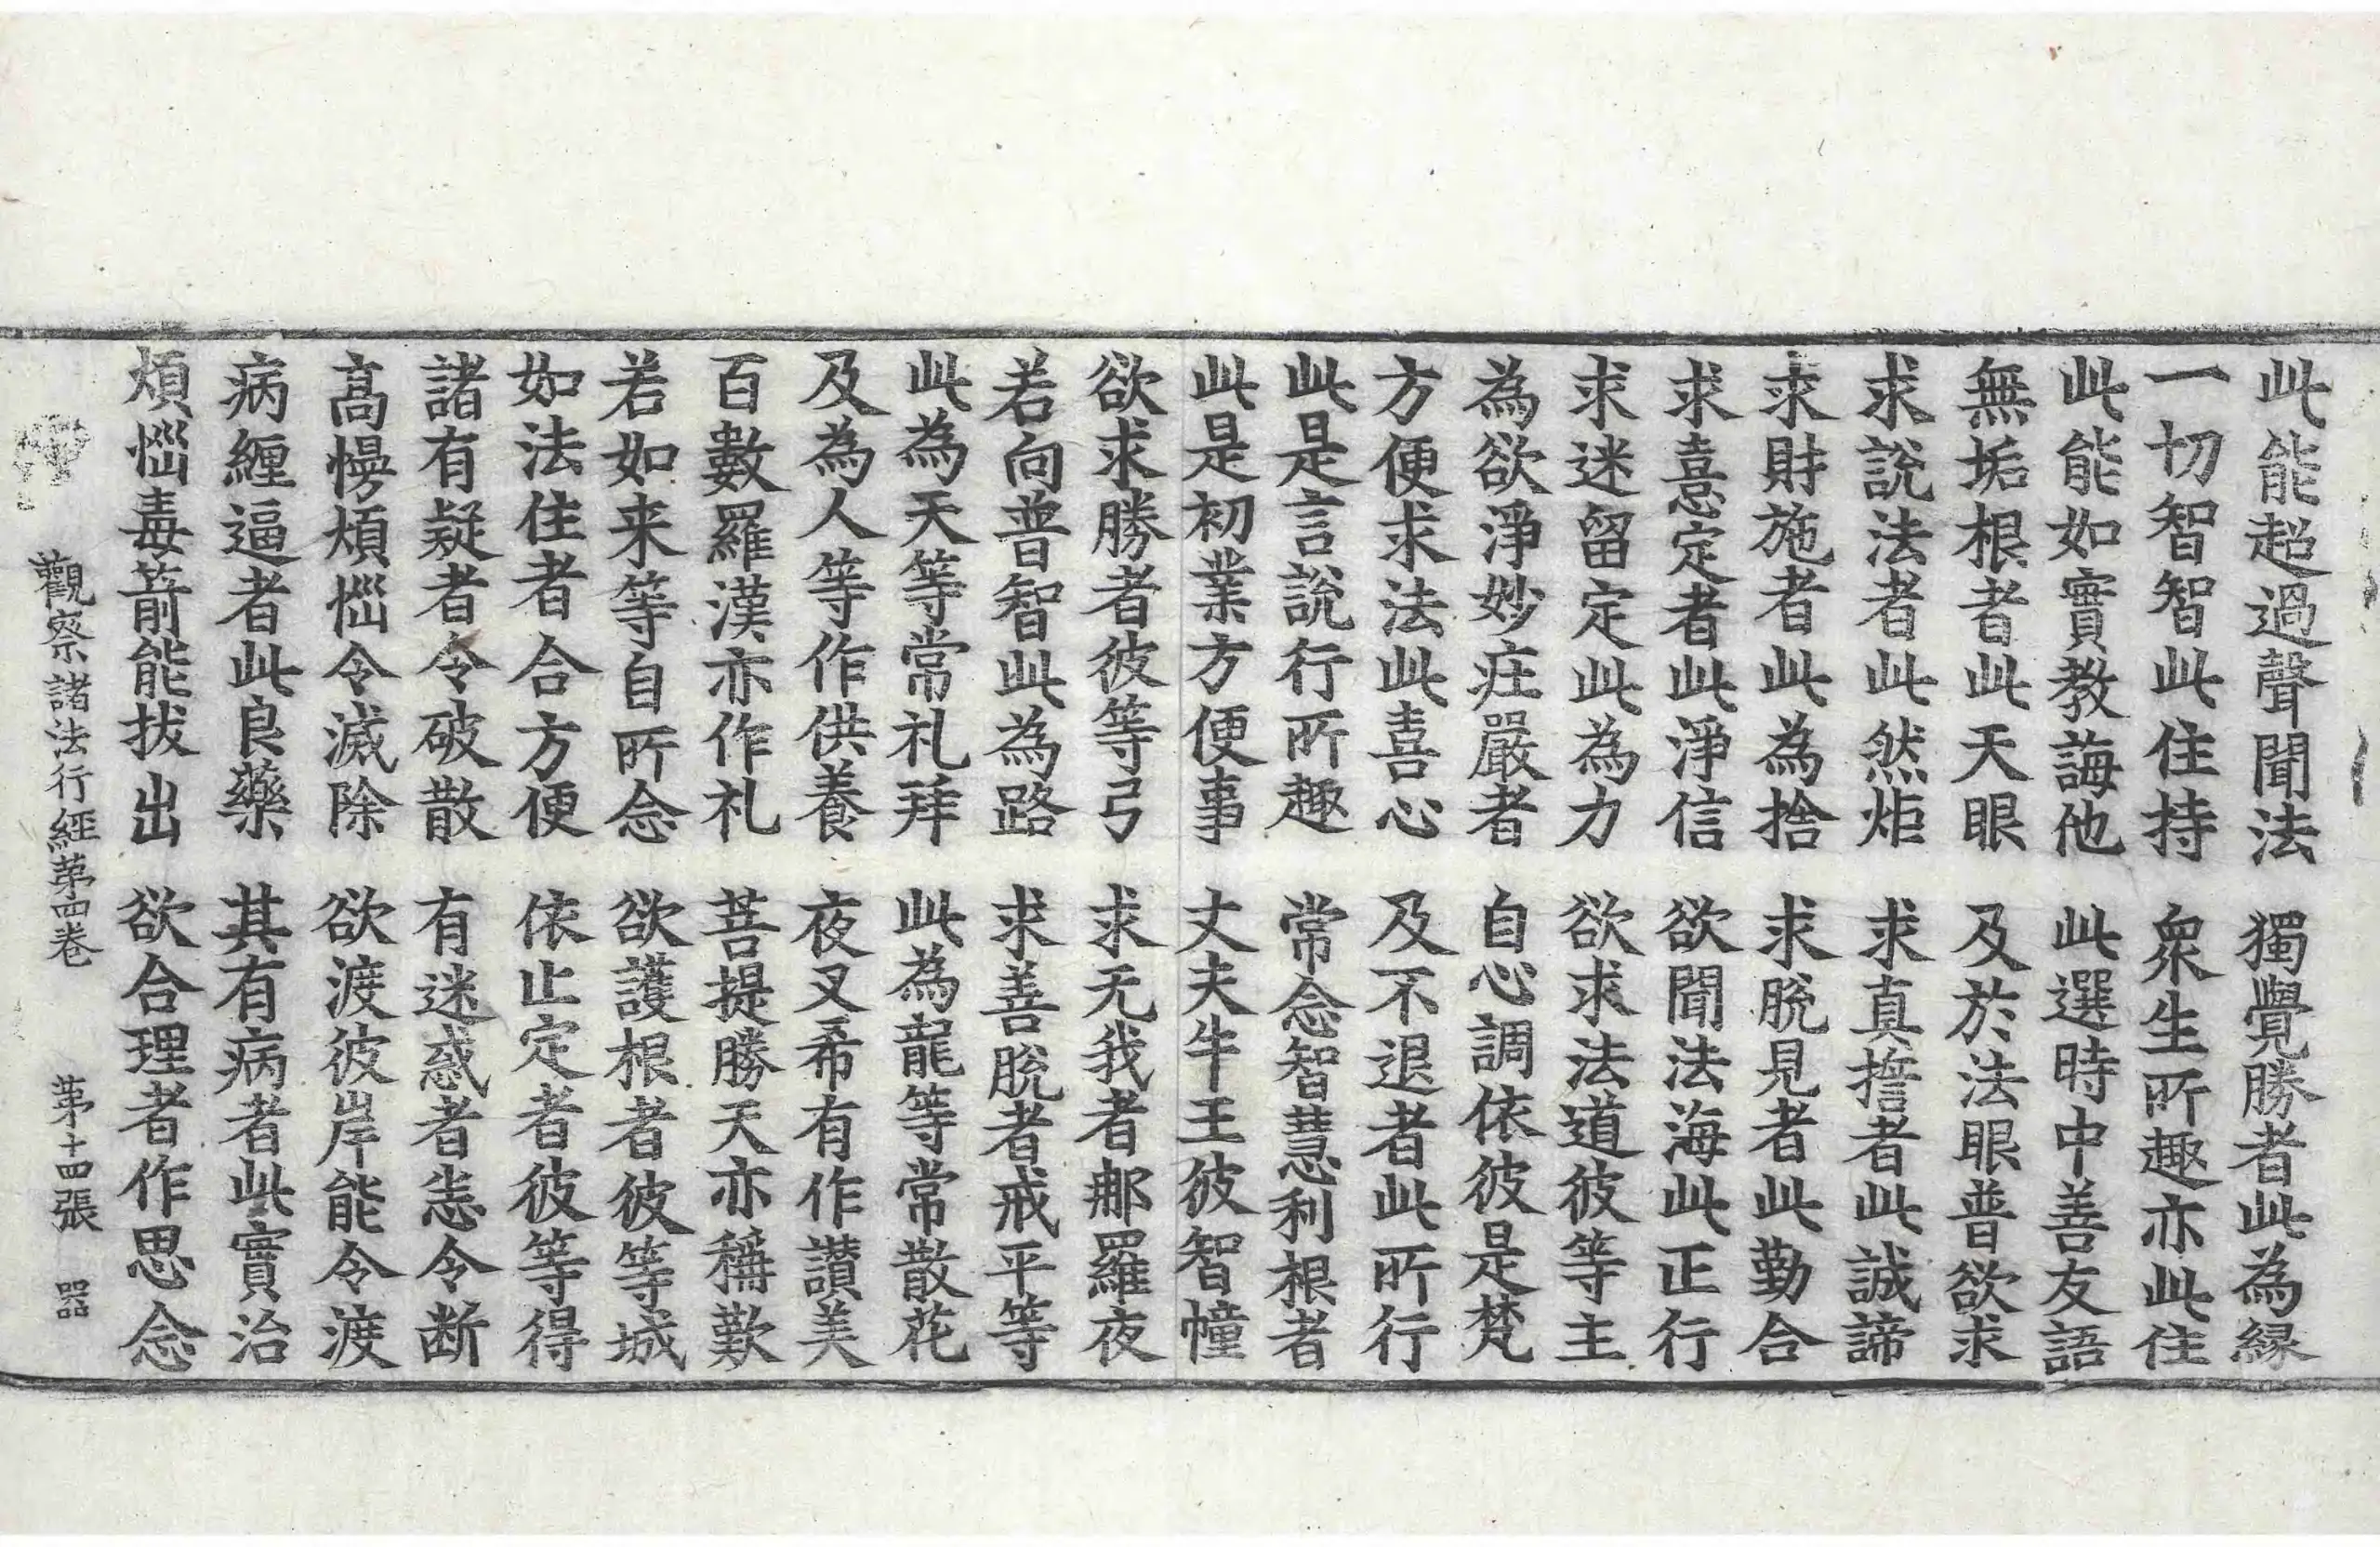 此能超過聲聞法　獨覺勝者此為緣
一切智智此住持　眾生所趣亦此住
此能如實教誨他　此選時中善友語
無垢根者此天眼　及於法眼普欲求
求說法者此然炬　求真誓者此誠諦
求財施者此為捨　求脫見者此勤合
求意定者此淨信　欲聞法海此正行
求迷留定此為力　欲求法道彼等主
為欲淨妙庄嚴者　自心調依彼是梵
方便求法此喜心　及不退者此所行
此是言說行所趣　常念智慧利根者
此是初業方便事　丈夫牛王彼智幢
欲求勝者彼等弓　求无我者那羅夜
若向普智此為路　求善脫者戒平等
此為天等常礼拜　此為龍等常散花
及為人等作供養　夜叉希有作讚美
百數羅漢亦作礼　菩提勝天亦稱歎
若如来等自所念　欲護根者彼等城
如法住者合方便　依止定者彼等得
諸有疑者令破散　有迷惑者恙令断
高慢煩惱令滅除　欲渡彼岸能令渡
病纏逼者此良藥　其有病者此實治
煩惱毒箭能拔出　欲合理者作思念
觀察諸法行經苐四卷　苐十四張　器